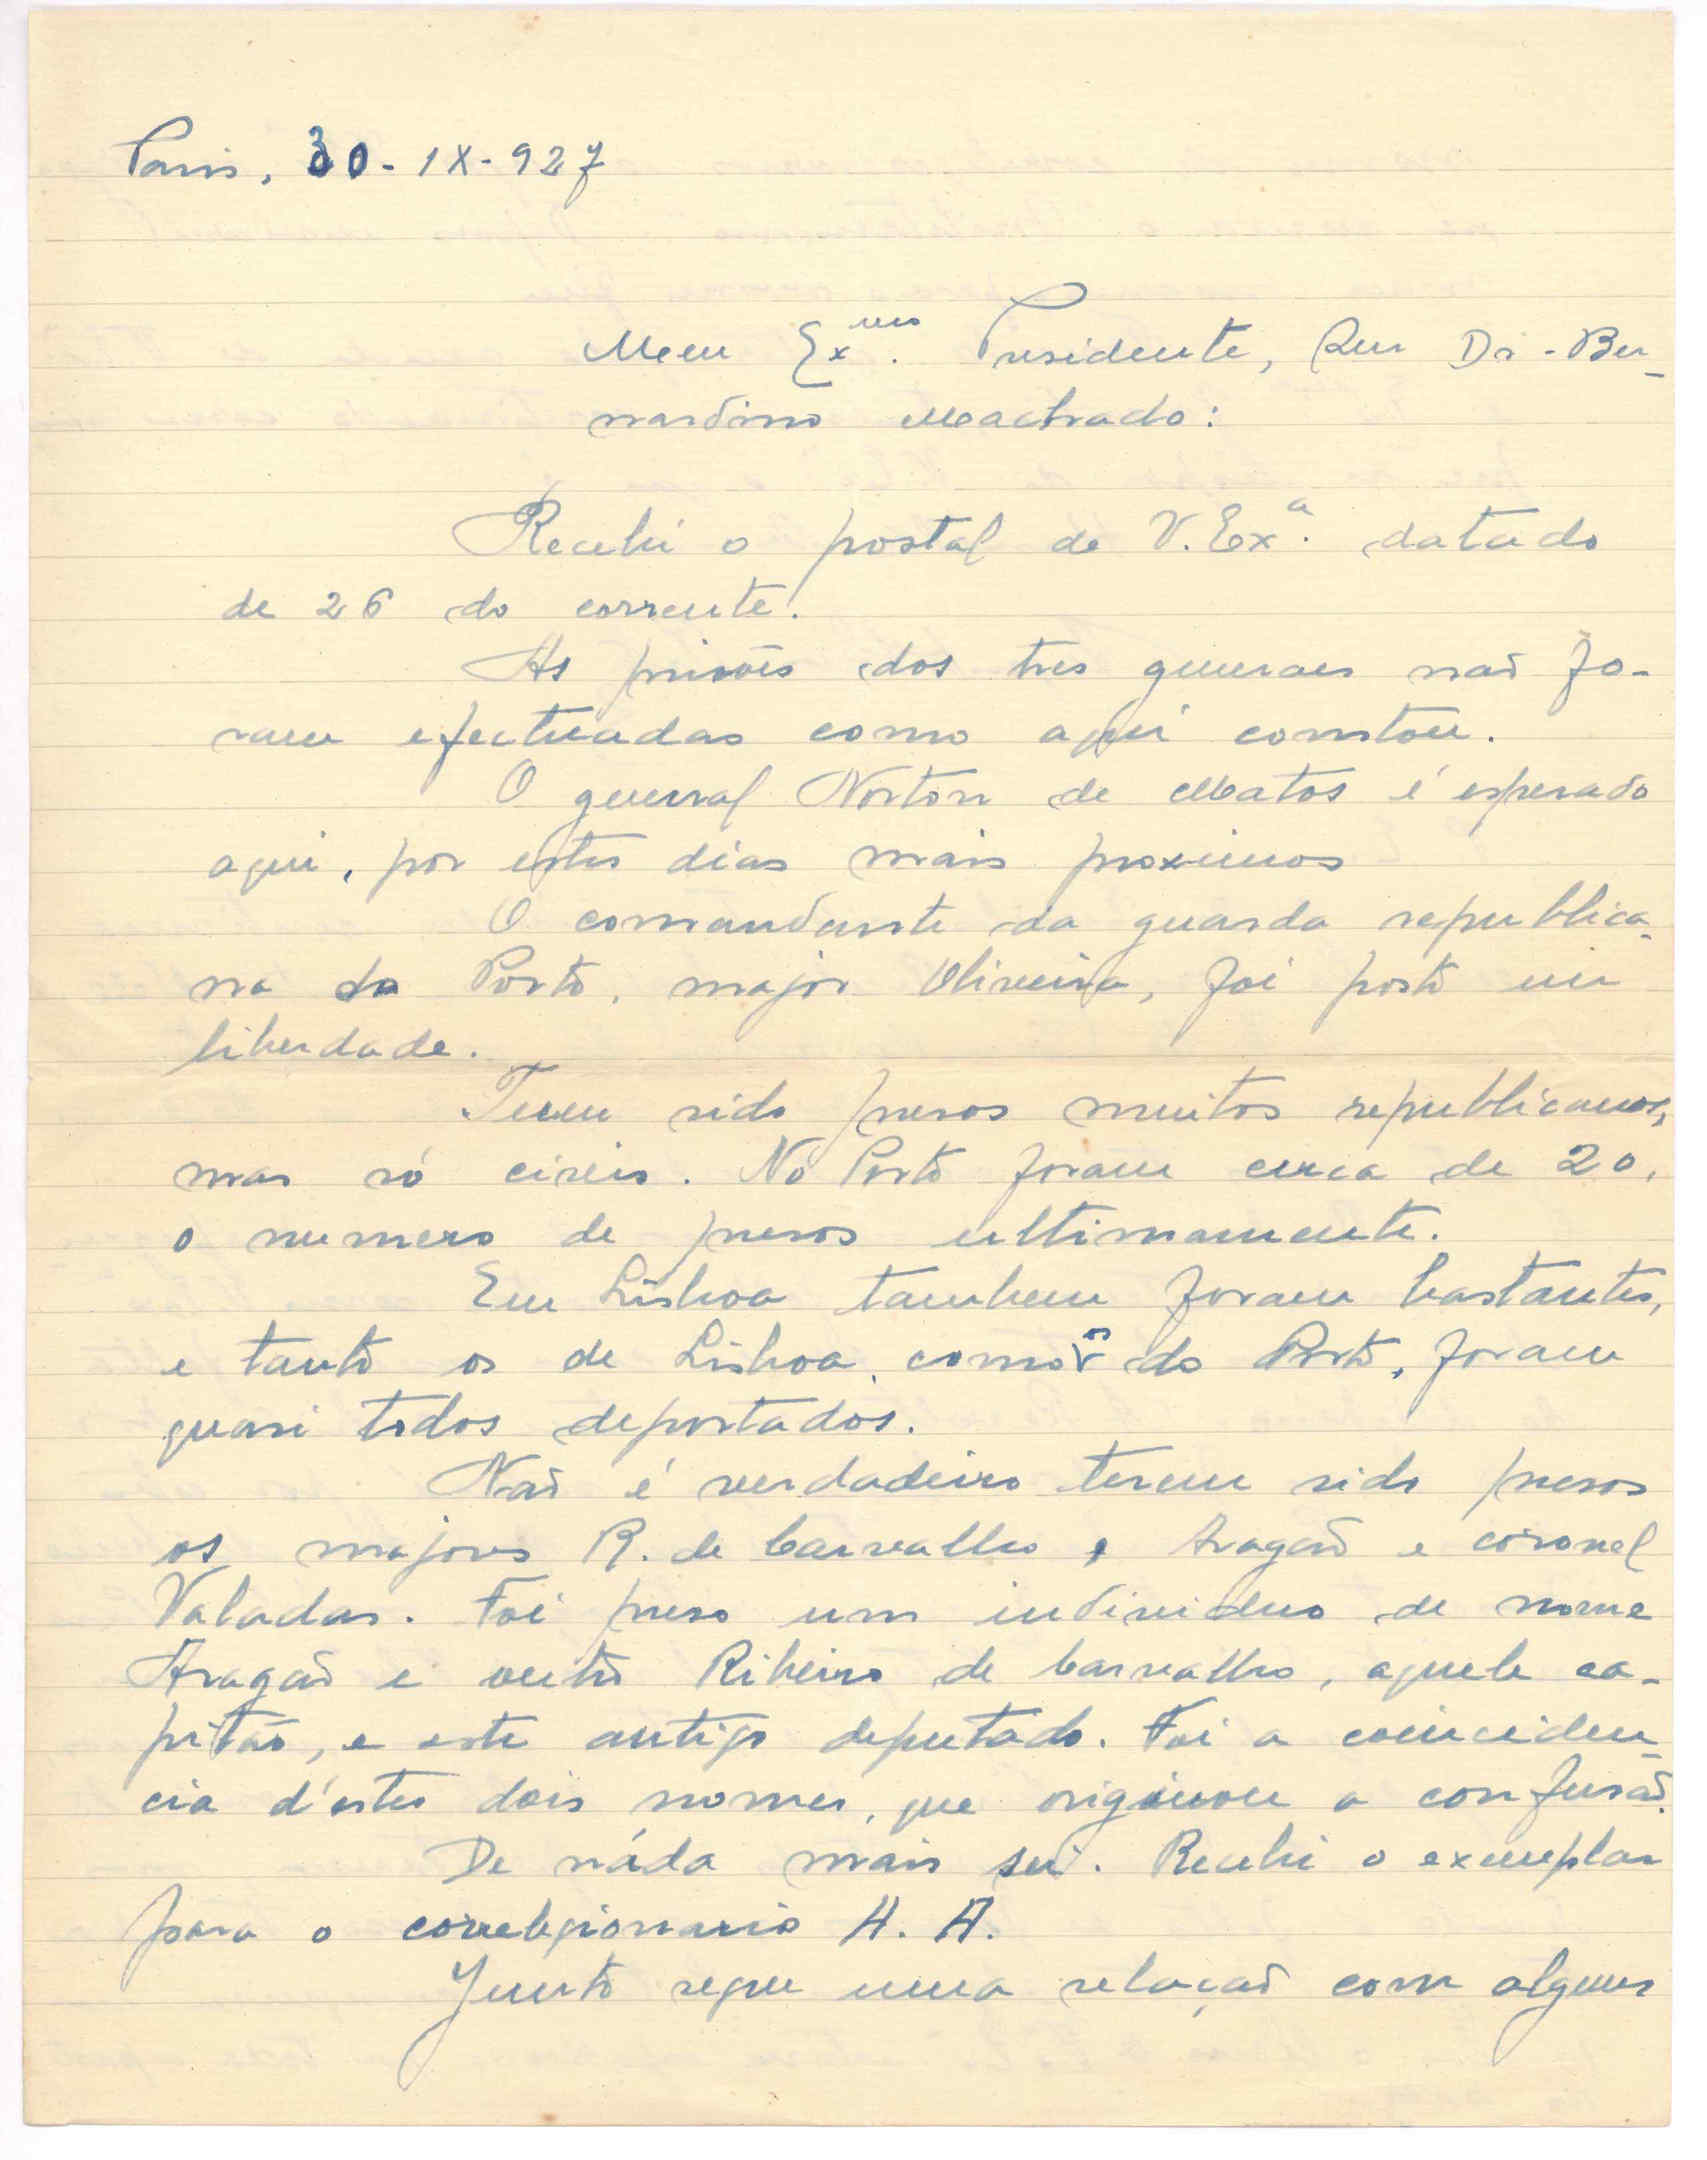 Paris, 30-IX-927
Meu Ex.mo Presidente, Snr Dr. Ber-
nardino Machado:
Recebi o postal de V. Ex.a datado
de 26 do corrente.
As prisões dos tres generaes não fo-
ram efectuadas como aqui constou.
O general Norton de Matos é esperado
aqui, por estes dias mais proximos
O comandante da guarda republica-
na do Porto, major Oliveira, foi posto em
liberdade.
Teem sido presos muitos republicanos,
mas só civeis. No Porto foram cerca de 20,
o numero de presos ultimamente.
Em Lisboa tambem foram bastantes,
e tanto os de Lisboa, como os do Porto, foram
quasi todos deportados.
Não é verdadeiro terem sido presos
os majores R. de Carvalho e Aragão e coronel
Valadas. Foi preso um individuo de nome
Aragão e outro Ribeiro de Carvalho, aquele ca-
pitão, e este antigo deputado. Foi a coinciden-
cia d'estes dois nomes, que originou a confusão.
De náda mais sei. Recebi o exemplar
para o correlegionario H. A.
Junto segue uma relação com alguns